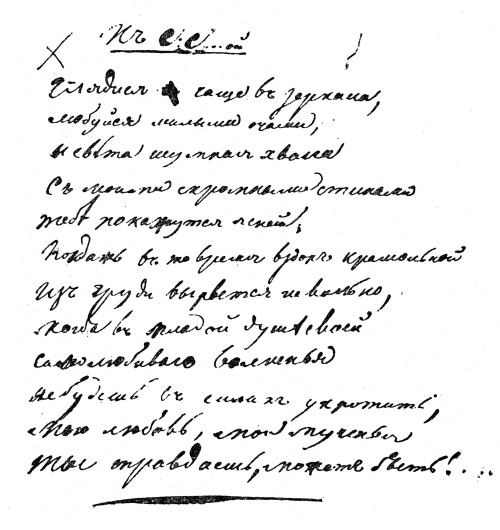 Къ
Глядися чаще въ зеркала,
любуйся милыми очами,
и свѣта шумная хвала
Съ моими скромными стихами
тебѣ покажутся ясней;
Когдажъ въ то время вздохъ крамольной
Изъ груди вырвется невольно,
когда въ младой душѣ своей
самолюбиваго волненья
не будешь въ силахъ укротить,
Мою любовь, мои мученья
Ты оправдаешь, можетъ быть!...